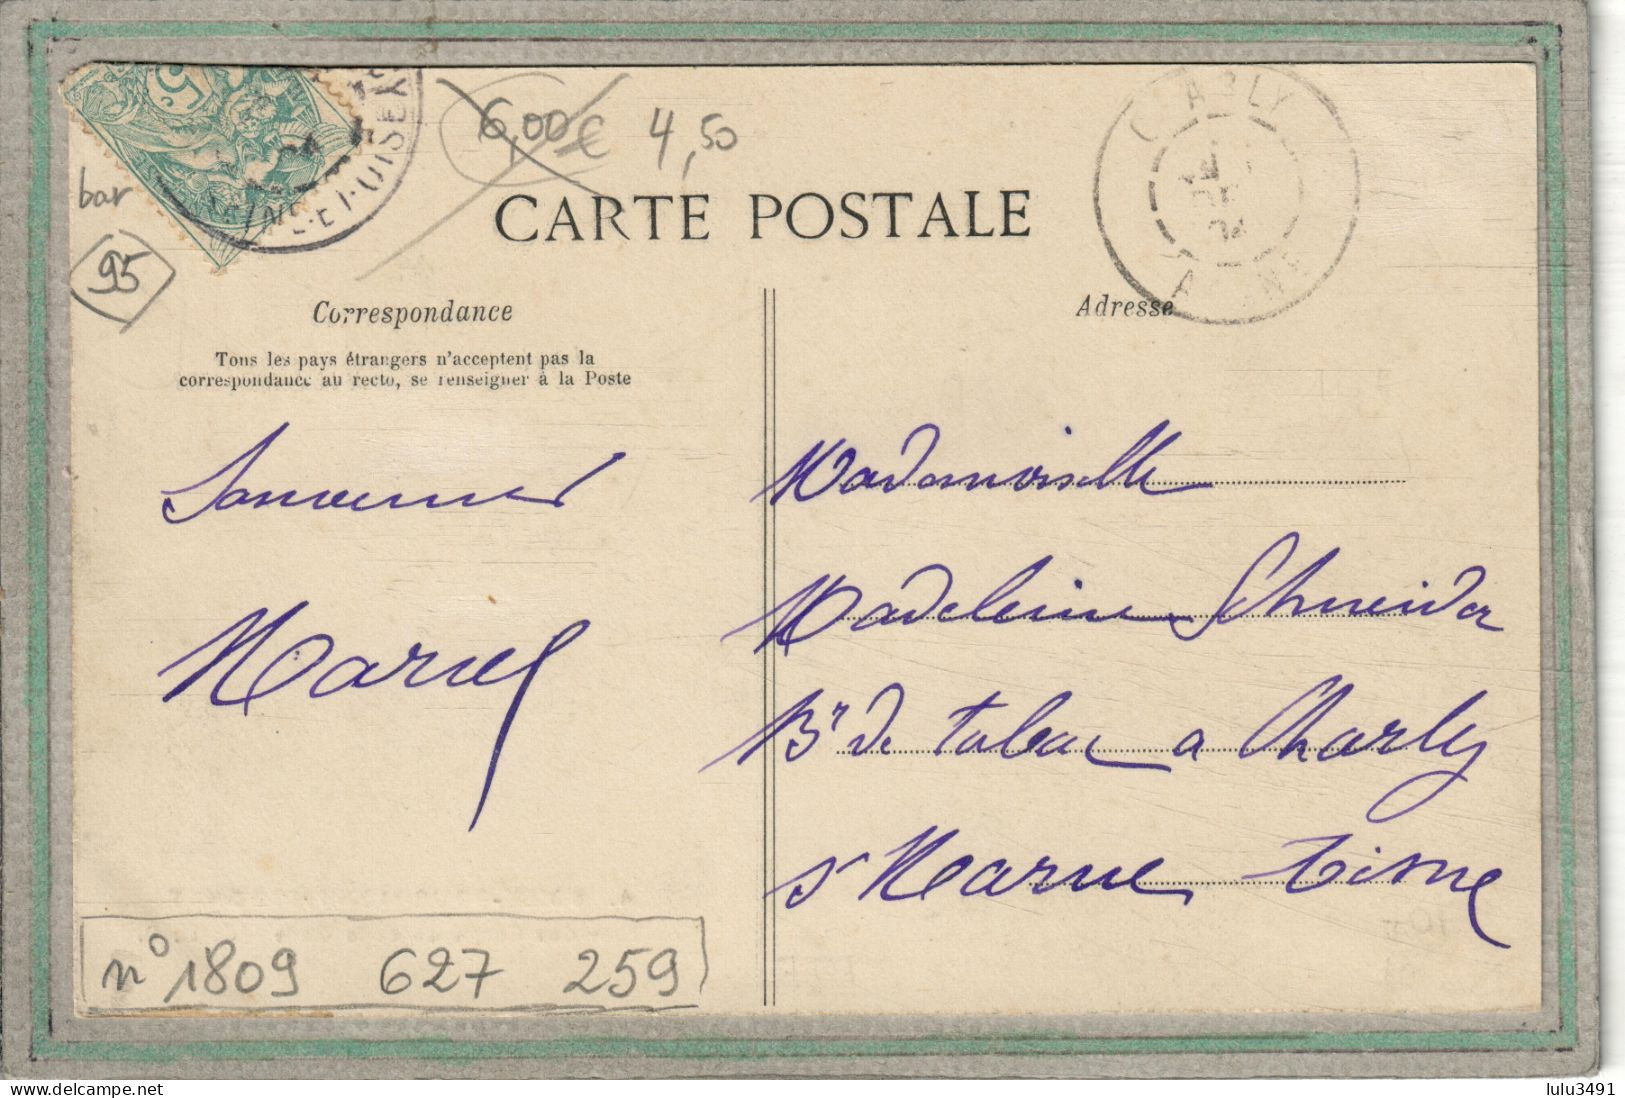 5
SEINE-ET-OISE
04
6,00€ 4,50
CHARLY
04
AISNE
bar
95
CARTE POSTALE
Correspondance
Adresse
Tous les pays étrangers n'acceptent pas la
correspondance au recto, se renseigner à la Poste
Souvenir
Marcel
Mademoiselle
Madeleine Schneider
Br de tabac a Charly
s/ Marne Aisne
n° 1809 627 259
lulu3491